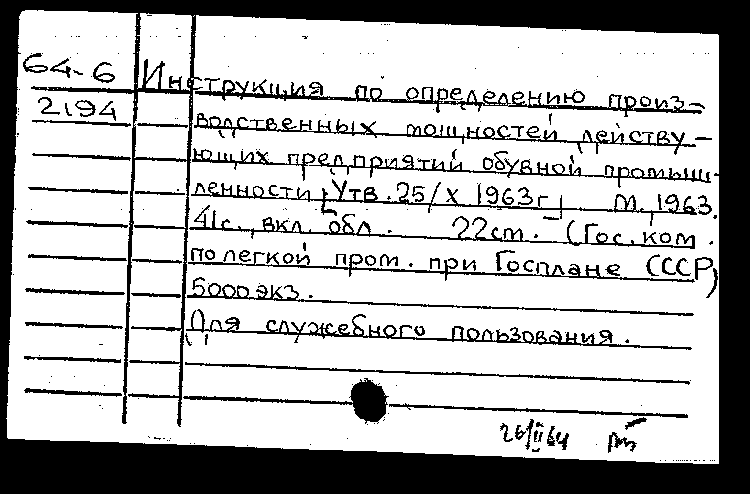 64-6 Инструкция по определению произ-
2194 водственных мощностей действу-
ющих предприятий обувной промыш-
ленности [Утв. 25/X 1963г] М., 1963.
41с., вкл. обл. 22см. (Гос. ком.
по легкой пром. при Госплане СССР)
5000 экз.
Для служебного пользования.
26/II 64